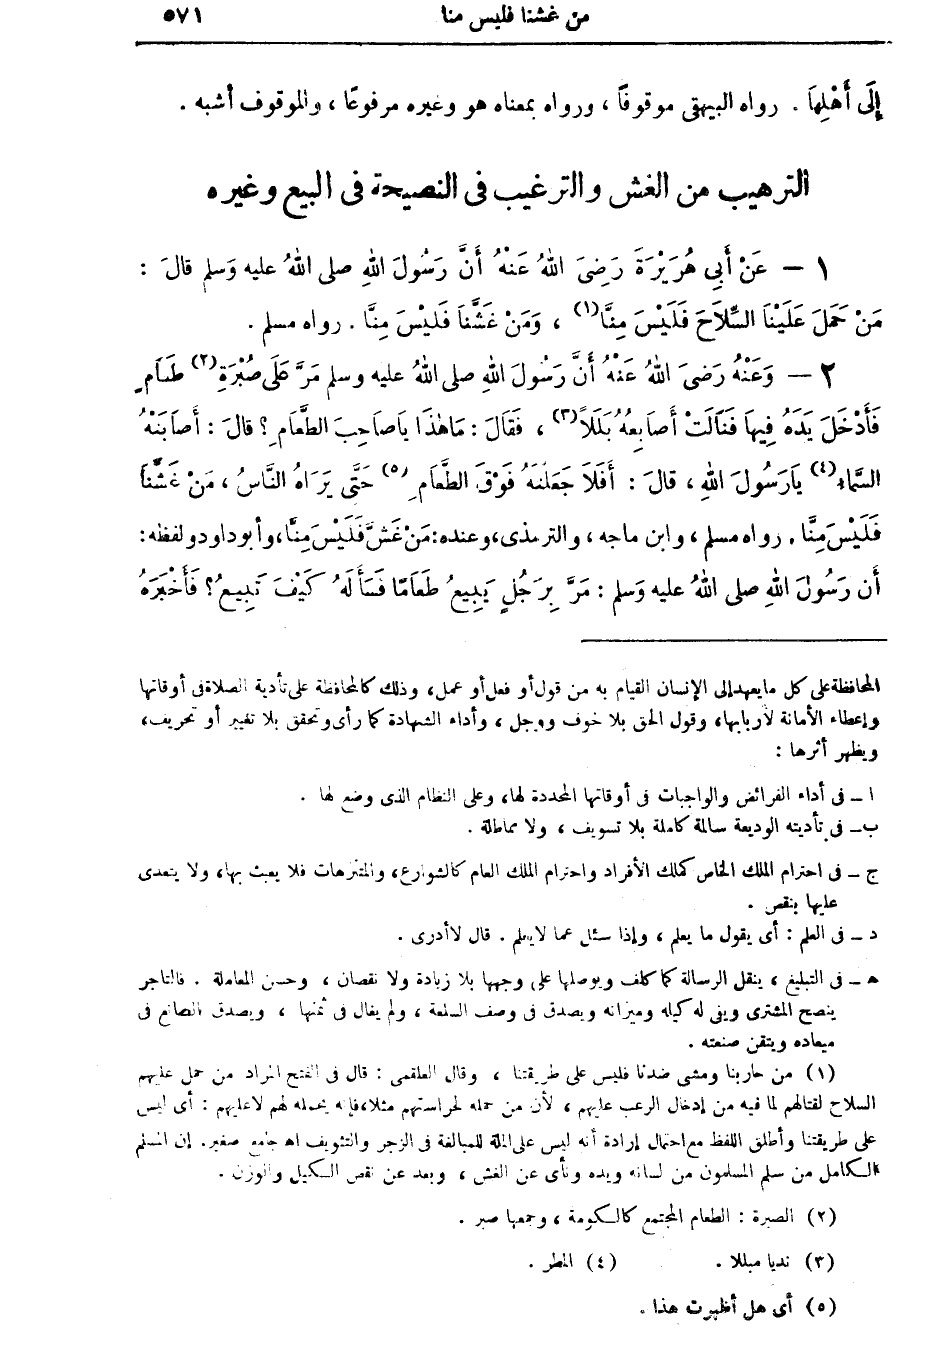 من غشنا فليس منا ٥٧١
إِلَى أَهْلِهَا . رواه البيهقى موقوفًا ، ورواه بمعناه هو وغيره مرفوعًا ، والموقوف أشبه .
الترهيب من الغش والترغيب فى النصيحة فى البيع وغيره
١ — عَنْ أَبِي هُرَيْرَةَ رَضِىَ اللهُ عَنْهُ أَنَّ رَسُولَ اللهِ صلى اللهُ عليه وَسلم قالَ :
مَنْ حَمَلَ عَلَيْنَا السِّلَاحَ فَلَيْسَ مِنَّا(١) ، وَمَنْ غَشَّنَا فَلَيْسَ مِنَّا . رواه مسلم .
٢ — وَعَنْهُ رَضىَ اللهُ عَنْهُ أَنَّ رَسُولَ اللهِ صلى اللهُ عليه وسلم مَرَّ عَلَى صُبْرَةِ(٢) طَعَامٍ
فَأَدْخَلَ يَدَهُ فِيهَا فَنَالَتْ أَصَابِعهُ بَلَلاً(٣) ، فَقَالَ : مَا هٰذَا يَا صَاحِبَ الطَّعَامِ ؟ قالَ : أَصَابَتْهُ
السَّمَاء(٤) يَا رَسُولَ اللهِ ، قالَ : أَفَلَا جَعَلْتَهُ فَوْقَ الطَّعَامِ(٥) حَتَّى يَرَاهُ النَّاسُ ، مَنْ غَشَّنَا
فَلَيْسَ مِنَّا . رواه مسلم ، وابن ماجه ، والترمذى، وعنده: مَنْ غَشَّ فَلَيْسَ مِنَّا، وأبو داود ولفظه:
أن رَسُولَ اللهِ صلى اللهُ عليه وَسلم : مَرَّ بِرَجُلٍ يَبِيعُ طَعَامًا فَسَأَلَهُ كَيْفَ تَبِيعُ؟ فَأَخْبَرَهُ
المحافظة على كل ما يعهد إلى الإنسان القيام به من قول أو فعل أو عمل، وذلك كالمحافظة على تأدية الصلاة فى أوقاتها
وإعطاء الأمانة لأربابها، وقول الحق بلا خوف ووجل ، وأداء الشهادة كما رأى وتحقق بلا تغيير أو تحريف،
ويظهر أثرها :
ا — فى أداء الفرائض والواجبات فى أوقاتها المحددة لها، وعلى النظام الذى وضع لها .
ب— فى تأديته الوديعة سالمة كاملة بلا تسويف ، ولا مماطلة .
ج — فى احترام الملك الخاص كملك الأفراد واحترام الملك العام كالشوارع، والمتنزهات فلا يعبث بها، ولا يتعدى
عليها بنقص .
د — فى العلم : أى يقول ما يعلم ، وإذا سئل عما لا يعلم . قال لا أدرى .
ه — فى التبليغ ، ينقل الرسالة كما كلف ويوصلها على وجهها بلا زيادة ولا نقصان ، وحسن المعاملة . فالتاجر
ينصح المشترى ويفى له كيله وميزانه ويصدق فى وصف السلعة ، ولم يغال فى ثمنها ، ويصدق الصانع فى
ميعاده ويتقن صنعته .
(١) من حاربنا ومشى ضدنا فليس على طريقتنا ، وقال العلقمى : قال فى الفتح المراد من حمل عليهم
السلاح لقتالهم لما فيه من إدخال الرعب عليهم ، لأن من حمله لحراستهم مثلا، فإنه يحمله لهم لا عليهم : أى ليس
على طريقتنا وأطلق اللفظ مع احتمال إرادة أنه ليس على الملة للمبالغة فى الزجر والتخويف اه جامع صغير . إن المسلم
الكامل من سلم المسلمون من لسانه ويده ونأى عن الغش ، وبعد عن نقص الكيل والوزن .
(٢) الصبرة : الطعام المجتمع كالكومة ، وجمعها صبر .
(٣) نديا مبللا . (٤) المطر .
(٥) أى هل أظهرت هذا .